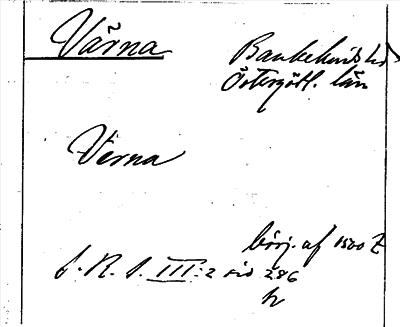 Värna
Bankekinds hd
Östergötl. län
Verna
börj. af 1500 t.
S. R. S. III:2 sid 286
h